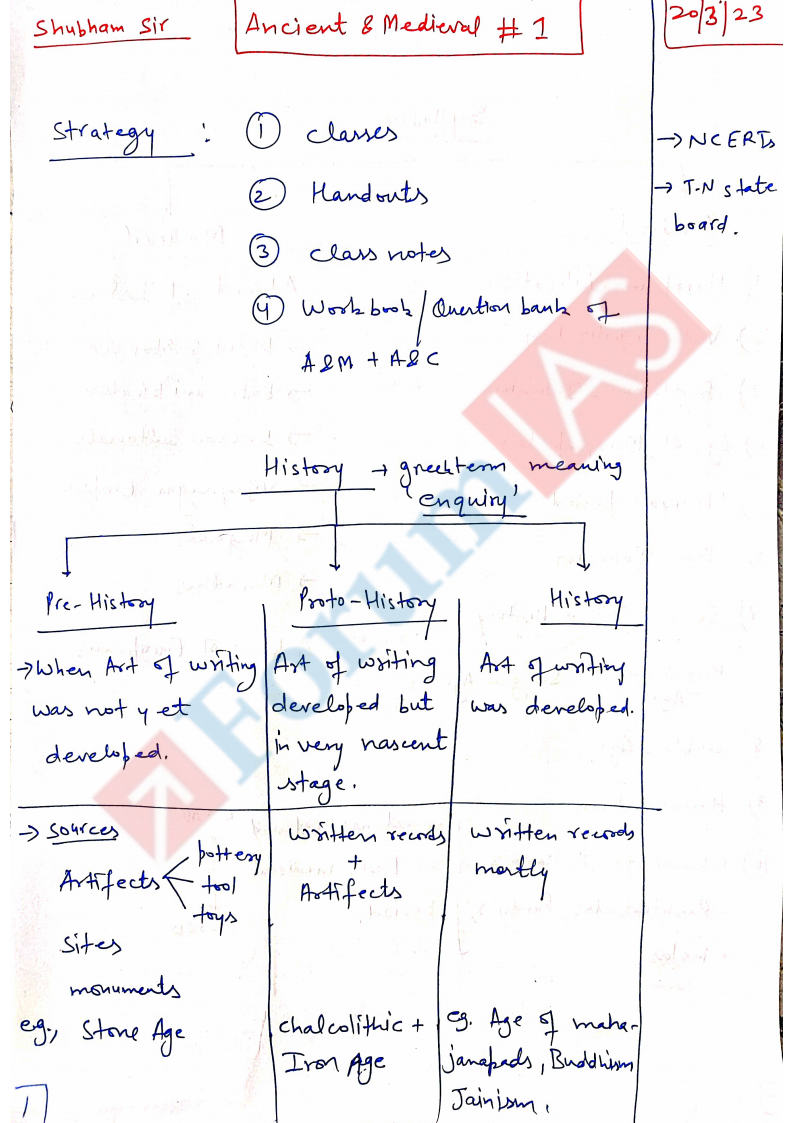 Shubham Sir
Ancient & Medieval # 1
20/3/23
Strategy : ① classes
② Handouts
③ class notes
④ Workbook/Question bank of
A&M + A&C
→ NCERTs
→ T.N state
board.
History → greek term meaning
'enquiry'
Pre-History
Proto-History
History
→ When Art of writing
was not yet
developed.
Art of writing
developed but
in very nascent
stage.
Art of writing
was developed.
→ Sources
Artifects
pottery
tool
toys
Sites
monuments
eg., Stone Age
written records
+
Artifects
chalcolithic +
Iron Age
written records
mostly
eg. Age of maha-
janapads, Buddhism
Jainism.
1
ForumIAS